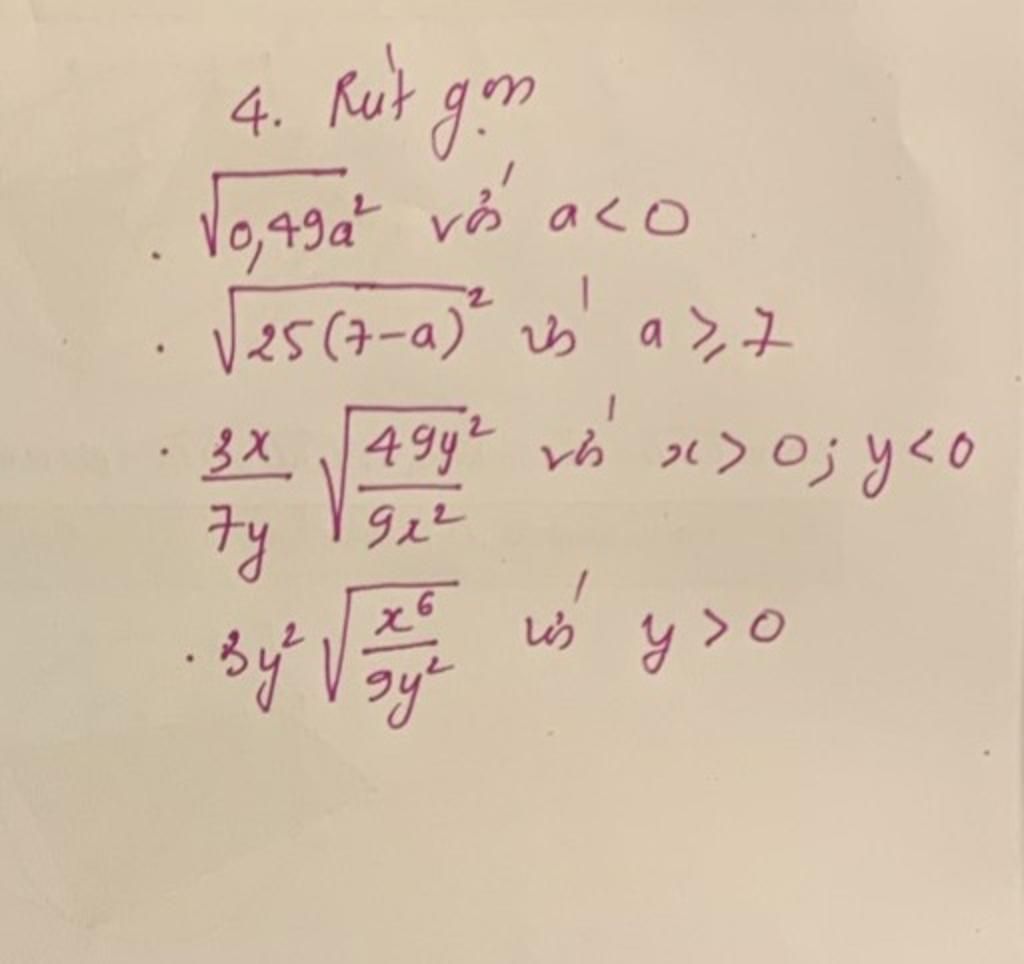 4. Rút gọn
. √0,49a² với a < 0
. √25(7-a)² với a ≥ 7
. 3x/7y √49y²/9x² với x > 0; y < 0
. 3y² √x⁶/9y² với y > 0